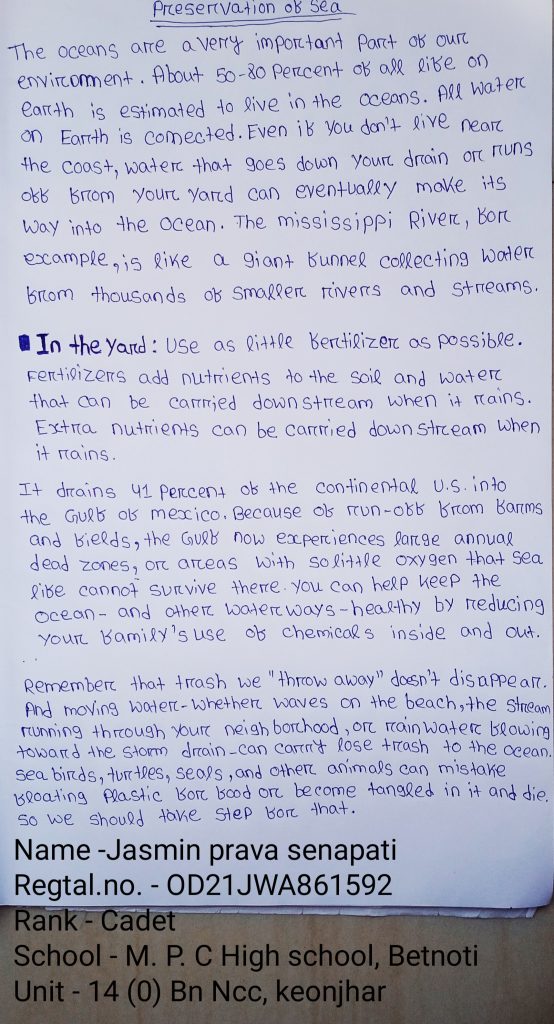 Preservation of Sea
The oceans are a very important part of our
environment. About 50-80 Percent of all life on
earth is estimated to live in the oceans. All water
on Earth is connected. Even if you don't live near
the coast, water that goes down your drain or runs
off from your yard can eventually make its
way into the ocean. The mississippi River, for
example, is like a giant funnel collecting water
from thousands of smaller rivers and streams.
In the yard: Use as little fertilizer as possible.
Fertilizers add nutrients to the soil and water
that can be carried downstream when it rains.
Extra nutrients can be carried downstream when
it rains.
It drains 41 Percent of the continental U.S. into
the Gulf of mexico. Because of run-off from farms
and fields, the Gulf now experiences large annual
dead zones, or areas with so little oxygen that sea
life cannot survive there. You can help keep the
ocean - and other waterways - healthy by reducing
your family's use of chemicals inside and out.
Remember that trash we "throw away" doesn't disappear.
And moving water-whether waves on the beach, the stream
running through your neighborhood, or rain water flowing
toward the storm drain-can carry lose trash to the ocean.
sea birds, turtles, seals, and other animals can mistake
floating plastic for food or become tangled in it and die.
So we should take step for that.
Name -Jasmin prava senapati
Regtal.no. - OD21JWA861592
Rank - Cadet
School - M. P. C High school, Betnoti
Unit - 14 (0) Bn Ncc, keonjhar